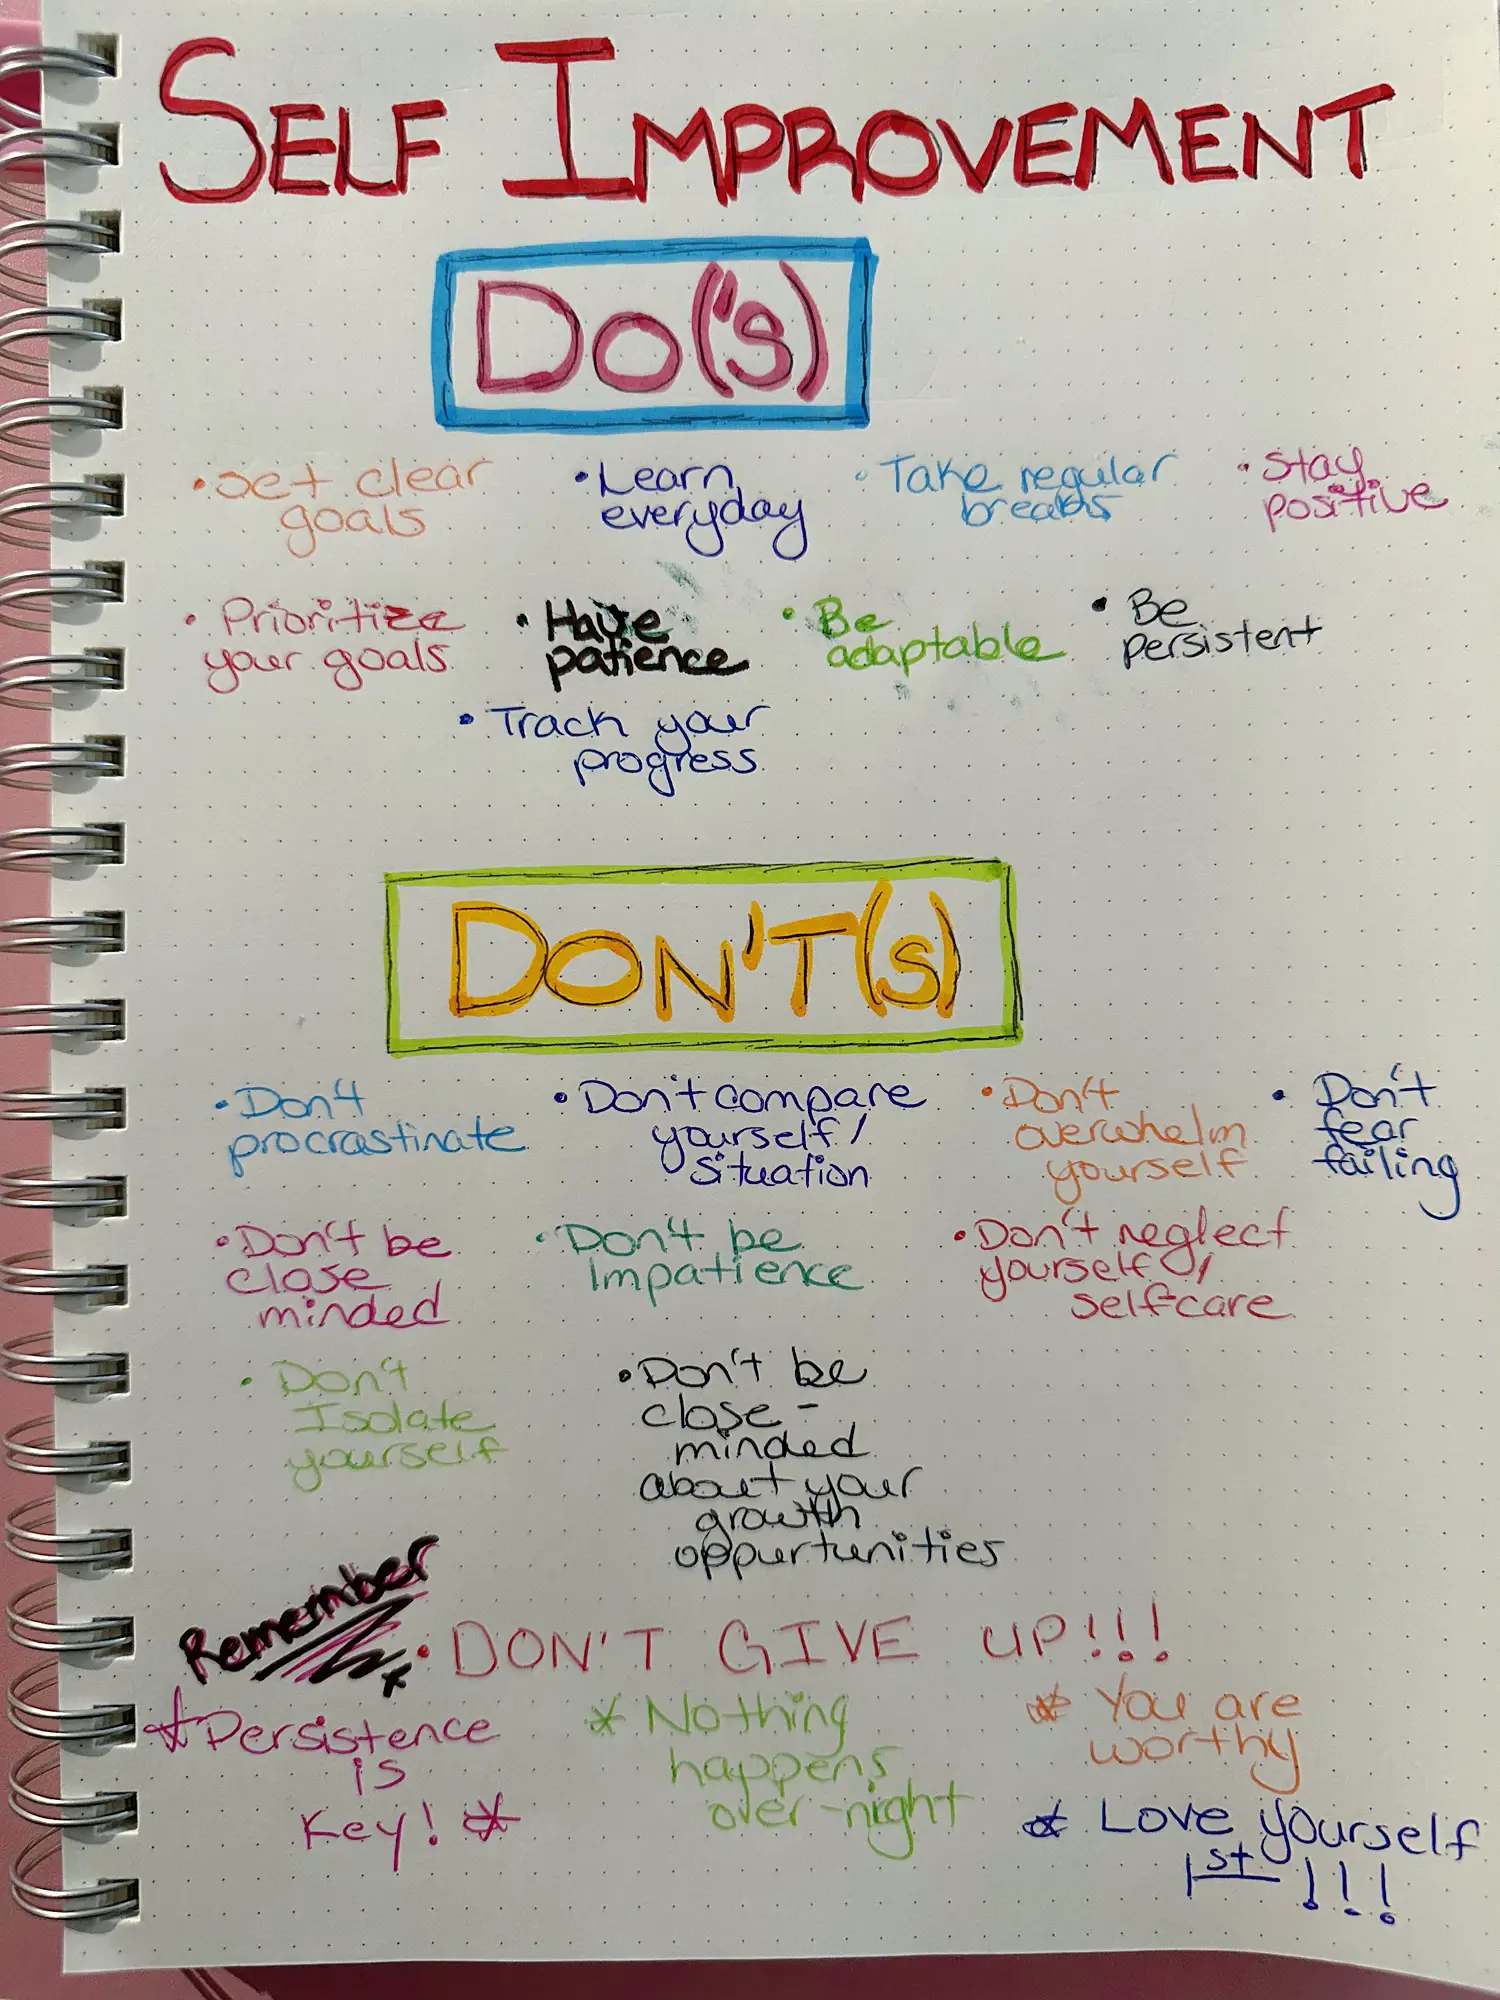 SELF IMPROVEMENT
DO('s)
• Set clear
goals
• Learn
everyday
• Take regular
breaks
• Stay
positive
• Prioritize
your goals
• Have
patience
• Be
adaptable
• Be
persistent
• Track your
progress
DON'T(s)
• Don't
procrastinate
• Don't compare
yourself/
situation
• Don't
overwhelm
yourself
• Don't
fear
failing
• Don't be
close
minded
• Don't be
Impatience
• Don't neglect
yourself/
self-care
• Don't
Isolate
yourself
• Don't be
close-
minded
about your
growth
oppurtunities
Remember
• DON'T GIVE UP!!!
* Persistence
is
Key! *
* Nothing
happens
over-night
* You are
worthy
* Love yourself
1st !!!